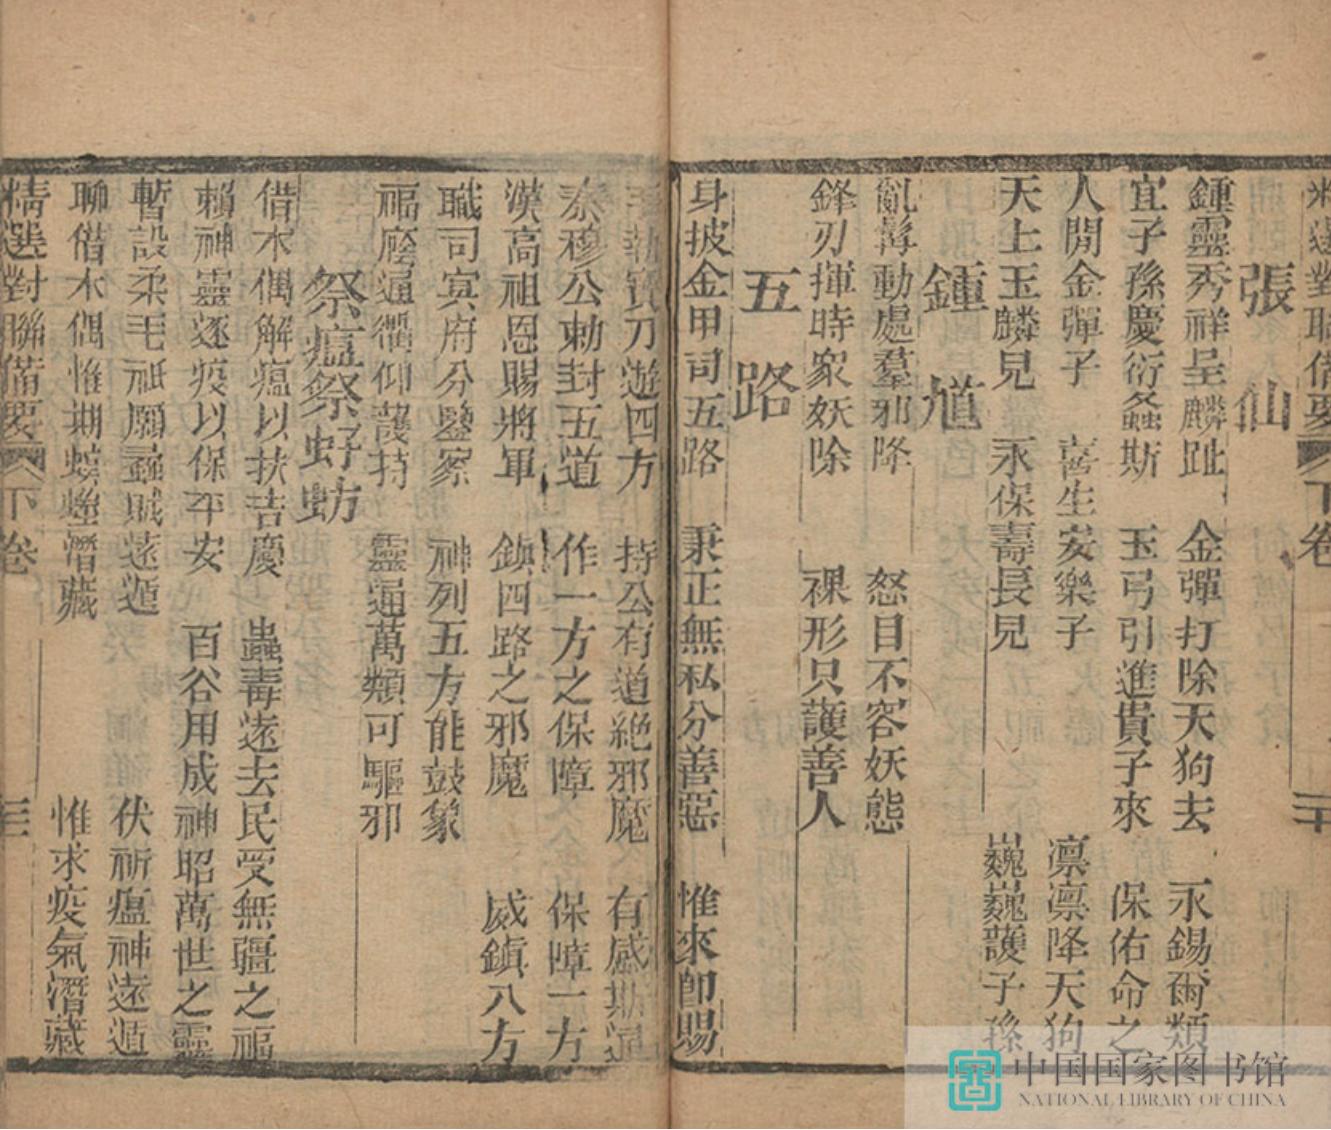 精選對聯備要 下卷 二十
張仙
鍾靈秀祥呈麟趾 金彈打除天狗去 永錫爾類
宜子孫慶衍螽斯 玉弓引進貴子來 保佑命之
人間金彈子 喜生安樂子 凛凛降天狗
天上玉麟見 永保壽長見 巍巍護子孫
鍾馗
亂髯動處羣邪降 怒目不容妖態
鋒刃揮時衆妖除 裸形只護善人
五路
身披金甲司五路 秉正無私分善惡 惟來卽賜
手執寶刀遊四方 持公有道絕邪魔 有感斯通
秦穆公勅封五道 作一方之保障 保障一方
漢高祖恩賜將軍 鎮四路之邪魔 威鎮八方
職司冥府分鑒察 神列五方能鼓象
福庇通衢仰護持 靈通萬類可驅邪
祭瘟祭蚜蚄
借木偶解瘟以扶吉慶 蟲毒遠去民受無疆之福
賴神靈逐疫以保平安 百谷用成神昭萬世之靈
暫設柔毛祗願蟊賊遠遁 伏祈瘟神遠遁
聊借木偶惟期螟螣潛藏 惟求疫氣潛藏
精選對聯備要 下卷
中国国家图书馆
NATIONAL LIBRARY OF CHINA